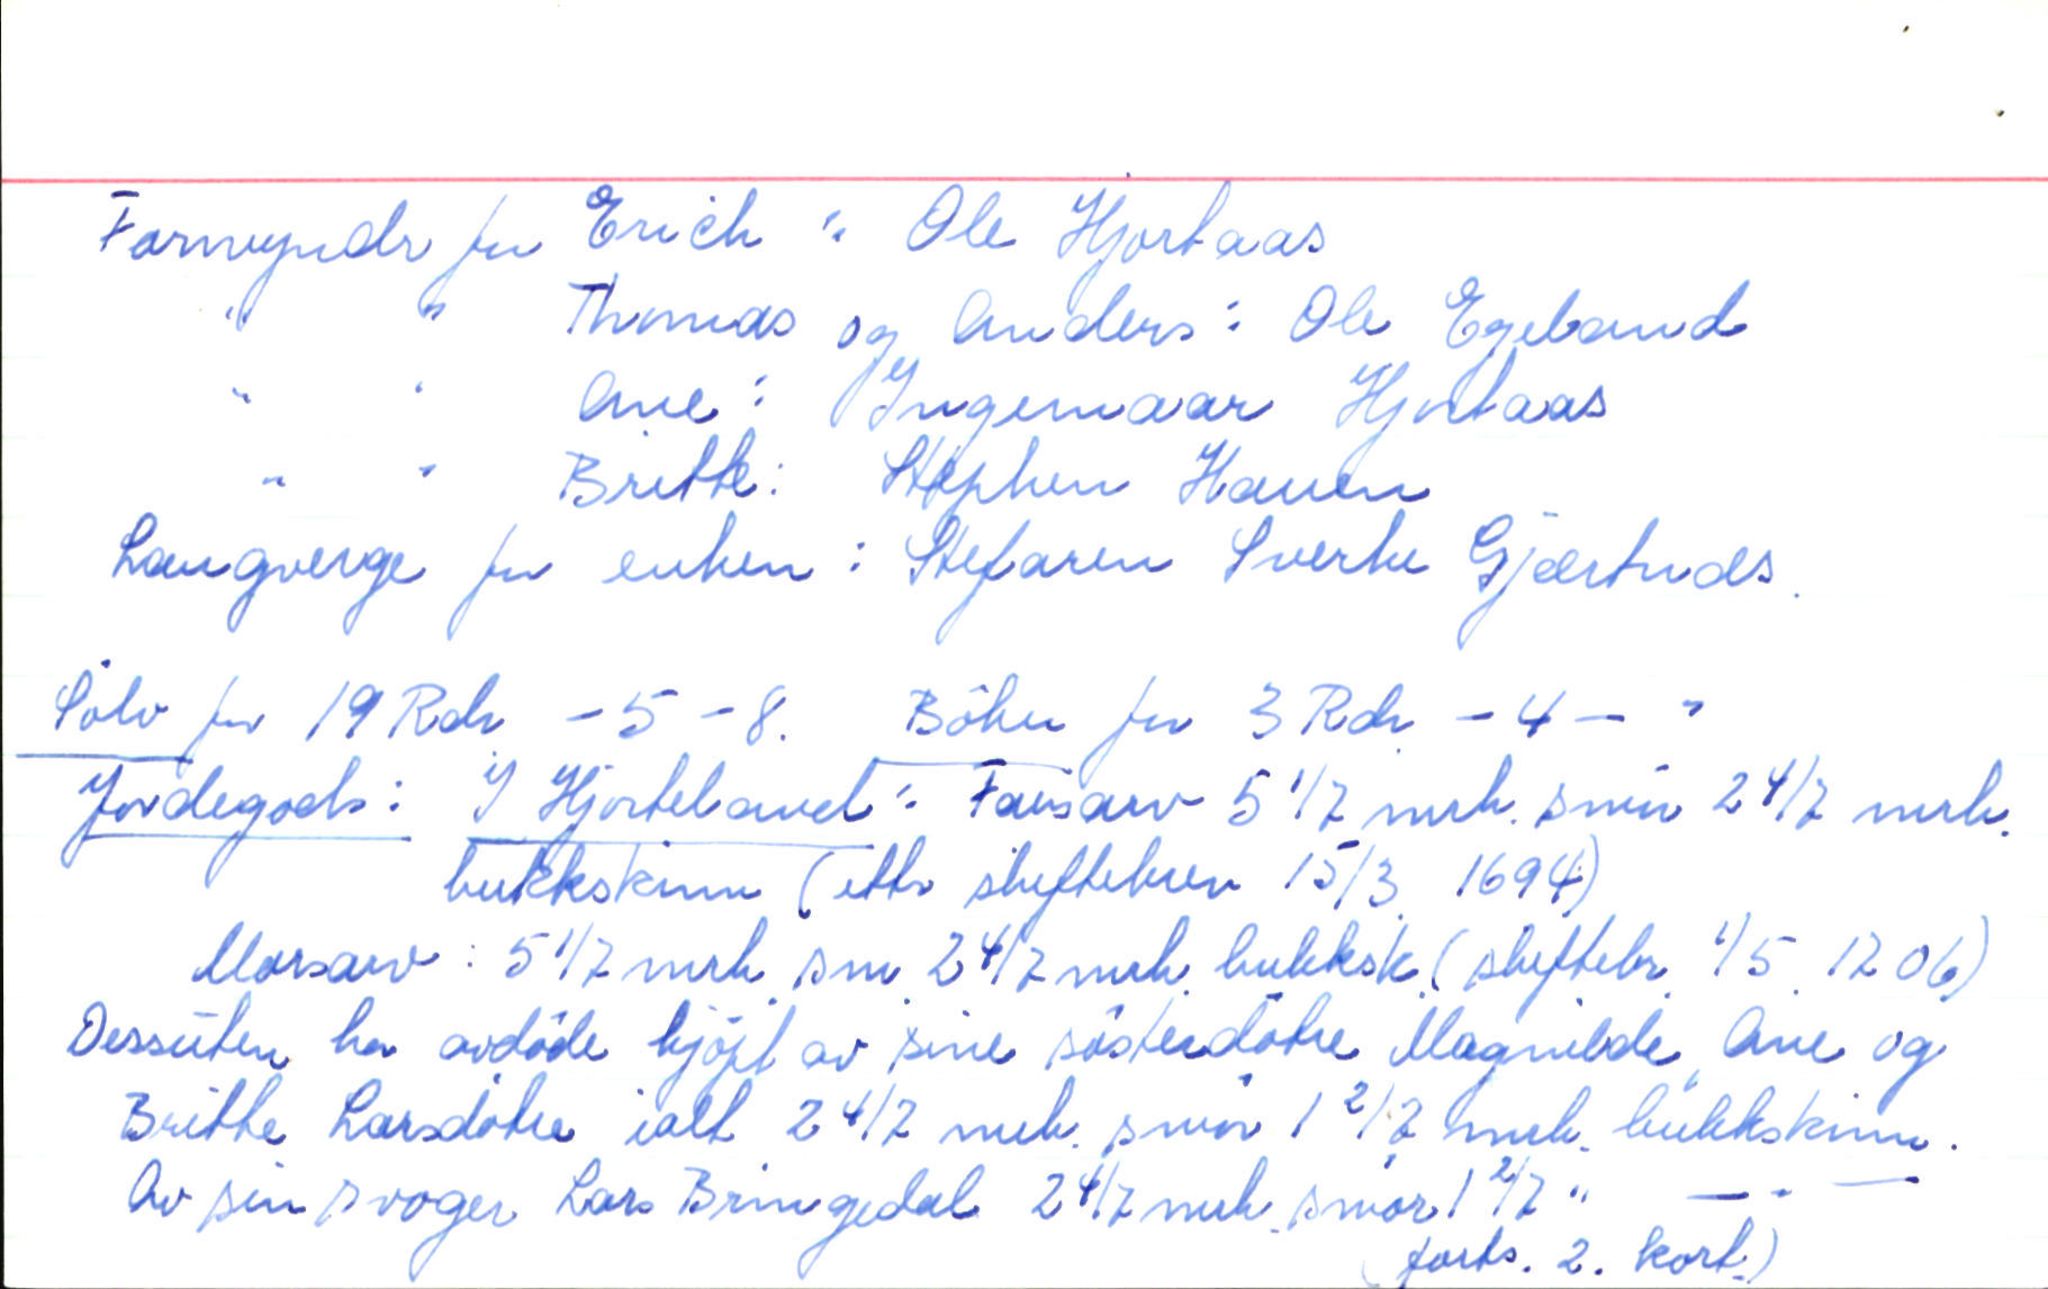 Formyndr for Erich : Ole Hjortaas
" " Thomas og Anders : Ole Egeland
" " Ane : Ingemaar Hjortaas
" " Britte : Stephen Hauen
Laugverge for enken : Stefaren Sverke Gjertnæs.
Sölv for 19 Rdr - 5 - 8. Böker for 3 Rdr - 4 - "
Jordegods : I Hjorteland : Farsarv 5 1/7 mrk. smör 2 4/7 mrk.
bukkskinn (ettr skiftebrev 15/3 1694)
Morsarv : 5 1/7 mrk sm 2 4/7 mrk. bukksk. (skiftebr. 1/5 1706)
Dessuten har avdöde kjöpt av sine söster­dötre Magnilde, Ane og
Britte Larsdötre ialt 2 4/7 mrk. smör 1 2/7 mrk. bukkskinn.
Av sin svoger Lars Bringedal 2 4/7 mrk. smör 1 2/7 " — " —
(forts. 2. kort.)